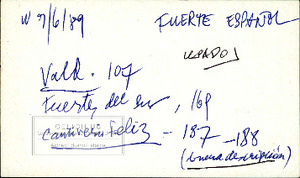 W 7/6/89
FUERTE ESPAÑOL
USADO
Vald. 107
Fuertes del sur, 169
Cautiverio Feliz - 187 - 188
(buena descripción)